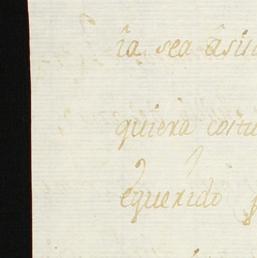 îa sea âsis
quiera costu
equerido